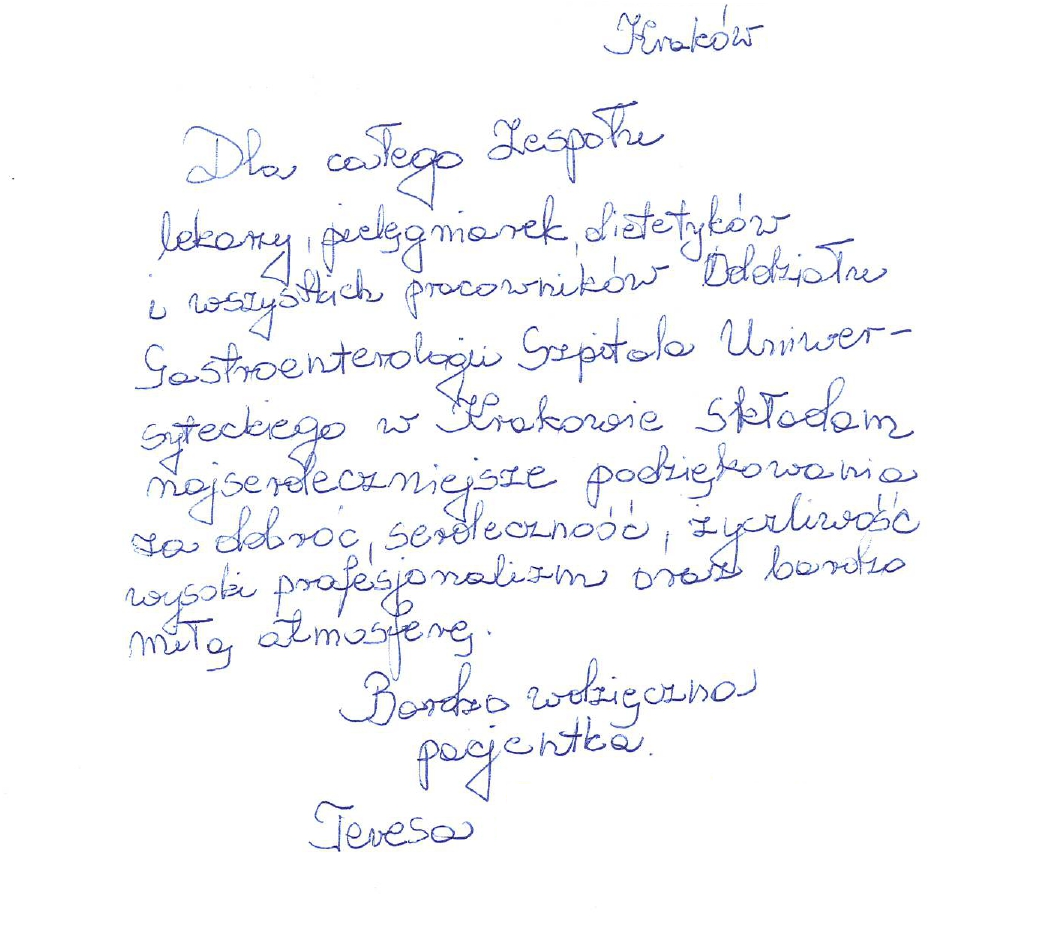 Kraków
Dla całego Zespołu
lekarzy, pielęgniarek, dietetyków
i wszystkich pracowników Oddziału
Gastroenterologii Szpitala Uniwer-
syteckiego w Krakowie składam
najserdeczniejsze podziękowania
za dobroć, serdeczność, życzliwość
wysoki profesjonalizm oraz bardzo
miłą atmosferę.
Bardzo wdzięczna
pacjentka.
Teresa